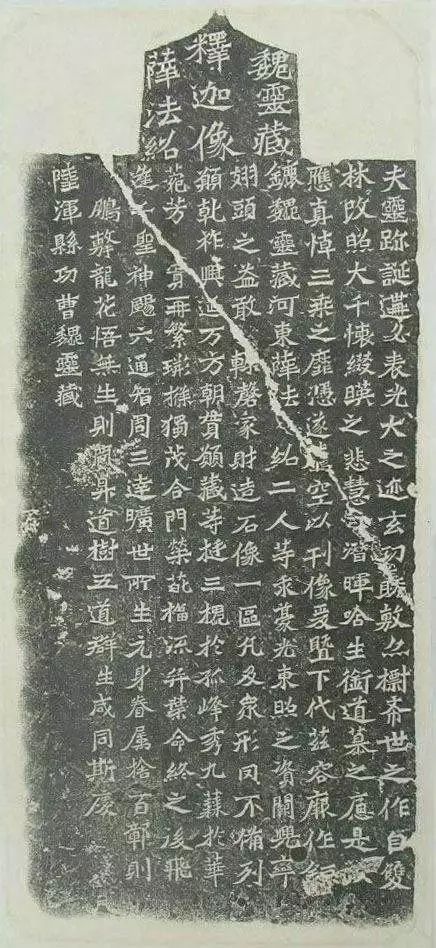 魏靈藏
釋迦像
薛法紹
夫靈跡誕遘必表光大之迹玄功既敷亦標希世之作自雙
林改照大千懷綴暎之悲慧潛暉唅生銜道慕之應是
應真悼三乘之靡憑遂騰空以刊像爰暨下代茲容廓作
鑣魏靈藏河東薛法紹二人等求豪光東照之資闕兜率
翅頭之益敢輒磬家財造石像一區凡及眾形罔不備列
願乾祚興延万方朝貫願藏等挺三槐於孤峰秀九蕀於華
苑芳實再繁荊條獨茂合門榮葩福流奕葉命終之後飛
逢千聖神颺六通智周三達曠世所生元身眷屬捨百鄣則
鵬擊龍花悟無生則鳳昇道樹五道群生咸同斯慶
陸渾縣功曹魏靈藏